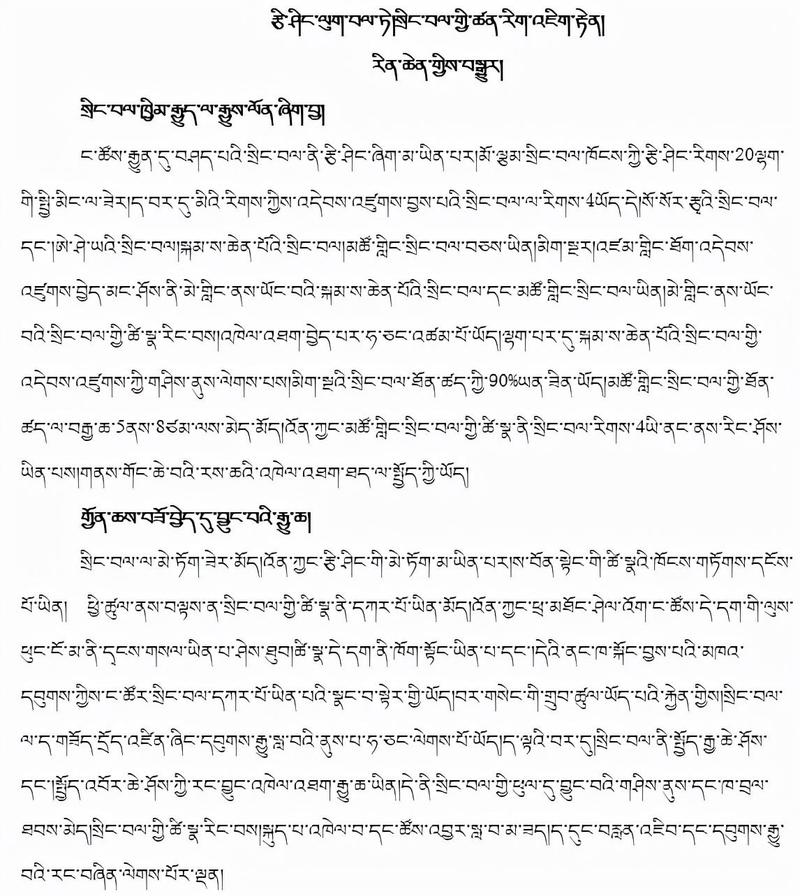 རྩི་ཤིང་ལུག་བལ་ཏེ།སྲིང་བལ་གྱི་ཚན་རིག་འཇིག་རྟེན།
རིན་ཆེན་གྱིས་བསྒྱུར།
སྲིང་བལ་ཁྱིམ་རྒྱུད་ལ་རྒྱུས་ལོན་ཞིག་བྱ།
ང་ཚོས་རྒྱུན་དུ་བཤད་པའི་སྲིང་བལ་ནི་རྩི་ཤིང་ཞིག་མ་ཡིན་པར།མོ་ལྕམ་སྲིང་བལ་ཁོངས་ཀྱི་རྩི་ཤིང་རིགས་20ལྷག་
གི་སྤྱི་མིང་ལ་ཟེར།ད་བར་དུ་མིའི་རིགས་ཀྱིས་འདེབས་འཛུགས་བྱས་པའི་སྲིང་བལ་ལ་རིགས་4ཡོད་དེ།སོ་སོར་རྩྭའི་སྲིང་བལ་
དང་།ཨེ་ཤེ་ཡའི་སྲིང་བལ།སྐམ་ས་ཆེན་པོའི་སྲིང་བལ།མཚོ་གླིང་སྲིང་བལ་བཅས་ཡིན།མིག་སྔར།འཛམ་གླིང་ཐོག་འདེབས་
འཛུགས་བྱེད་མང་ཤོས་ནི་མེ་གླིང་ནས་ཡོང་བའི་སྐམ་ས་ཆེན་པོའི་སྲིང་བལ་དང་མཚོ་གླིང་སྲིང་བལ་ཡིན།མེ་གླིང་ནས་ཡོང་
བའི་སྲིང་བལ་གྱི་ཚི་སྣ་རིང་བས།འཁེལ་འཐག་བྱེད་པར་ཧ་ཅང་འཚམ་པོ་ཡོད།ལྷག་པར་དུ་སྐམ་ས་ཆེན་པོའི་སྲིང་བལ་གྱི་
འདེབས་འཛུགས་ཀྱི་གཤིས་ནུས་ལེགས་པས།མིག་སྔའི་སྲིང་བལ་ཐོན་ཚད་ཀྱི་90%ཡན་ཟིན་ཡོད།མཚོ་གླིང་སྲིང་བལ་གྱི་ཐོན་
ཚད་ལ་བརྒྱ་ཆ་5ནས་8ཙམ་ལས་མེད་མོད།འོན་ཀྱང་མཚོ་གླིང་སྲིང་བལ་གྱི་ཚི་སྣ་ནི་སྲིང་བལ་རིགས་4ཡི་ནང་ནས་རིང་ཤོས་
ཡིན་པས།གནས་གོང་ཆེ་བའི་རས་ཆའི་འཁེལ་འཐག་ཐད་ལ་སྤྱོད་ཀྱི་ཡོད།
གྱོན་ཆས་བཟོ་བྱེད་དུ་བྱུང་བའི་རྒྱུ་ཆ།
སྲིང་བལ་ལ་མེ་ཏོག་ཟེར་མོད།འོན་ཀྱང་རྩི་ཤིང་གི་མེ་ཏོག་མ་ཡིན་པར།ས་བོན་སྟེང་གི་ཚི་སྣའི་ཁོངས་གཏོགས་དངོས་
པོ་ཡིན། ཕྱི་ཚུལ་ནས་བལྟས་ན་སྲིང་བལ་གྱི་ཚི་སྣ་ནི་དཀར་པོ་ཡིན་མོད།འོན་ཀྱང་ཕྲ་མཐོང་ཤེལ་འོག་ང་ཚོས་དེ་དག་གི་ལུས་
ཕུང་ངོ་མ་ནི་དྭངས་གསལ་ཡིན་པ་ཤེས་ཐུབ།ཚི་སྣ་དེ་དག་ནི་ཁོག་སྟོང་ཡིན་པ་དང་།དེའི་ནང་ཁ་སྐོང་བྱས་པའི་མཁའ་
དབུགས་ཀྱིས་ང་ཚོར་སྲིང་བལ་དཀར་པོ་ཡིན་པའི་སྣང་བ་སྟེར་གྱི་ཡོད།བར་གསེང་གི་གྲུབ་ཚུལ་ཡོད་པའི་རྐྱེན་གྱིས།སྲིང་བལ་
ལ་ད་གཟོད་དྲོད་འཛིན་ཞིང་དབུགས་རྒྱུ་སླ་བའི་ནུས་པ་ཧ་ཅང་ལེགས་པོ་ཡོད།ད་ལྟའི་བར་དུ།སྲིང་བལ་ནི་སྤྱོད་རྒྱ་ཆེ་ཤོས་
དང་།སྤྱོད་འབོར་ཆེ་ཤོས་ཀྱི་རང་བྱུང་འཁེལ་འཐག་རྒྱུ་ཆ་ཡིན།དེ་ནི་སྲིང་བལ་གྱི་ཕུལ་དུ་བྱུང་བའི་གཤིས་ནུས་དང་ཁ་བྲལ་
ཐབས་མེད།སྲིང་བལ་གྱི་ཚི་སྣ་རིང་བས།སྐུད་པ་འཁེལ་བ་དང་ཚོས་འབྱར་སླ་བ་མ་ཟད།ད་དུང་བརླན་འཇིབ་དང་དབུགས་རྒྱུ་
བའི་རང་བཞིན་ལེགས་པོར་ལྡན།